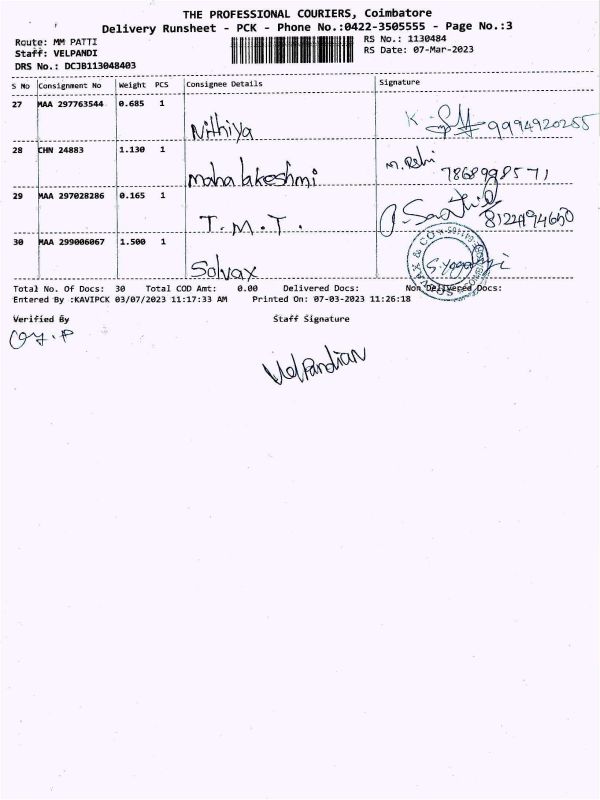 THE PROFESSIONAL COURIERS, Coimbatore
Delivery Runsheet - PCK - Phone No.:0422-3505555 - Page No.:3
Route: MM PATTI
RS No.: 1130484
Staff: VELPANDI
RS Date: 07-Mar-2023
DRS No.: DCJB113048403
S No Consignment No Weight PCS Consignee Details Signature
27 MAA 297763544 0.685 1 Nithiya 9994920255
28 CHN 24883 1.130 1 maha lakeshmi 7868998571
29 MAA 297028286 0.165 1 T.M.T.
30 MAA 299006067 1.500 1 Solvax
Total No. Of Docs: 30 Total COD Amt: 0.00 Delivered Docs: Non Delivered Docs:
Entered By :KAVIPCK 03/07/2023 11:17:33 AM Printed On: 07-03-2023 11:26:18
Verified By Staff Signature
Velpandian